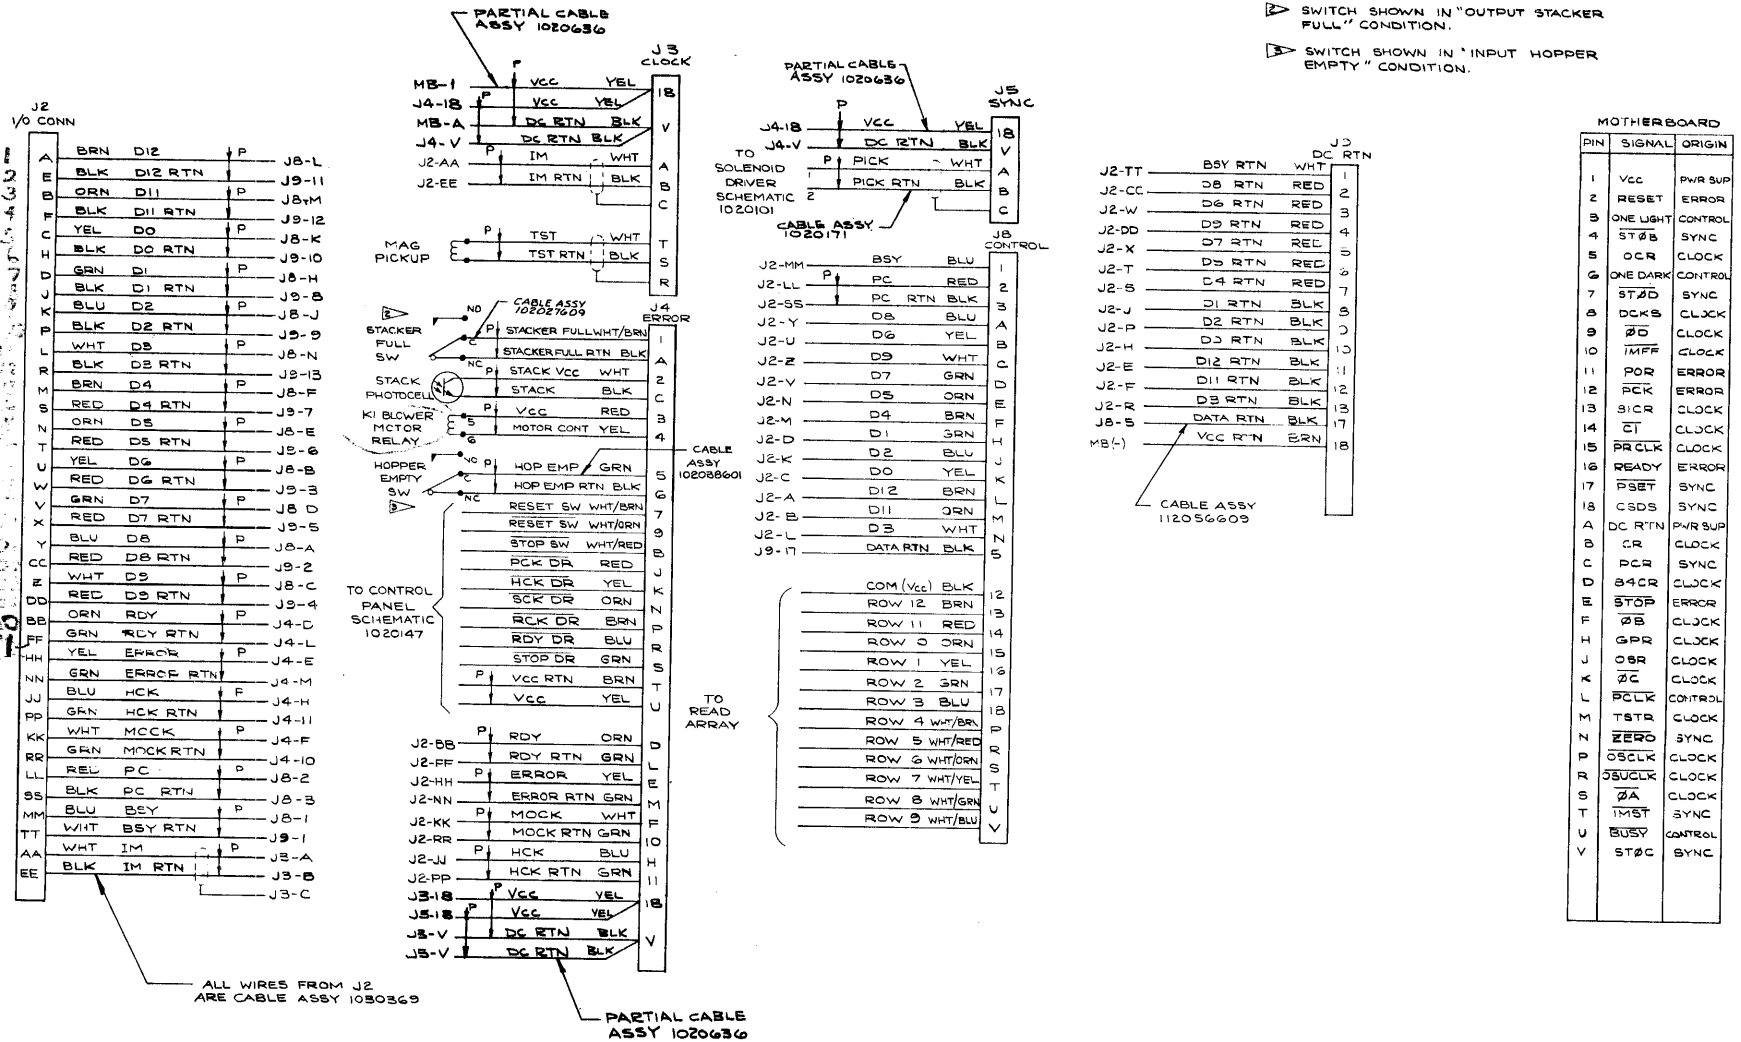 PARTIAL CABLE
ASSY 1020636
SWITCH SHOWN IN "OUTPUT STACKER
FULL" CONDITION.
SWITCH SHOWN IN "INPUT HOPPER
EMPTY" CONDITION.
J2
I/O CONN
A BRN D12 P J8-L
E BLK D12 RTN J9-11
B ORN D11 P J8-M
F BLK D11 RTN J9-12
C YEL D0 P J8-K
H BLK D0 RTN J9-10
D GRN D1 P J8-H
J BLK D1 RTN J9-8
K BLU D2 P J8-J
P BLK D2 RTN J9-9
L WHT D3 P J8-N
R BLK D3 RTN J9-13
M BRN D4 P J8-F
S RED D4 RTN J9-7
N ORN D5 P J8-E
T RED D5 RTN J9-6
U YEL D6 P J8-B
W RED D6 RTN J9-3
V GRN D7 P J8 D
X RED D7 RTN J9-5
Y BLU D8 P J8-A
CC RED D8 RTN J9-2
Z WHT D9 P J8-C
DD RED D9 RTN J9-4
BB ORN RDY P J4-D
FF GRN RDY RTN J4-L
HH YEL ERROR P J4-E
NN GRN ERROR RTN J4-M
JJ BLU HCK P J4-H
PP GRN HCK RTN J4-11
KK WHT MOCK P J4-F
RR GRN MOCK RTN J4-10
LL RED PC P J8-2
SS BLK PC RTN J8-3
MM BLU BSY P J8-1
TT WHT BSY RTN J9-1
AA WHT IM P J3-A
EE BLK IM RTN J3-B
J3-C
ALL WIRES FROM J2
ARE CABLE ASSY 1030369
J3
CLOCK
MB-1 P VCC YEL 18
J4-18 P VCC YEL
MB-A DC RTN BLK V
J4-V DC RTN BLK
J2-AA P IM WHT A
J2-EE IM RTN BLK B
C
MAG
PICKUP
P TST WHT T
TST RTN BLK S
R
J4
ERROR
CABLE ASSY
102027609
2
STACKER
FULL
SW
NO
C
NC
P STACKER FULL WHT/BRN 1
STACKER FULL RTN BLK A
STACK
PHOTOCELL
P STACK VCC WHT 2
STACK BLK C
K1 BLOWER
MOTOR
RELAY
5
6
P VCC RED 3
MOTOR CONT YEL 4
CABLE
ASSY
102038601
HOPPER
EMPTY
SW
3
NO
C
NC
P HOP EMP GRN 5
HOP EMP RTN BLK 6
TO CONTROL
PANEL
SCHEMATIC
1020147
RESET SW WHT/BRN 7
RESET SW WHT/ORN 9
STOP SW WHT/RED B
PCK DR RED J
HCK DR YEL K
SCK DR ORN N
RCK DR BRN P
RDY DR BLU R
STOP DR GRN S
P VCC RTN BRN T
VCC YEL U
J2-BB P RDY ORN D
J2-FF RDY RTN GRN L
J2-HH P ERROR YEL E
J2-NN ERROR RTN GRN M
J2-KK P MOCK WHT F
J2-RR MOCK RTN GRN 10
J2-JJ P HCK BLU H
J2-PP HCK RTN GRN 11
J3-18 P VCC YEL 18
J5-18 P VCC YEL
J3-V DC RTN BLK V
J5-V DC RTN BLK
PARTIAL CABLE
ASSY 1020636
PARTIAL CABLE
ASSY 1020636
J5
SYNC
J4-18 P VCC YEL 18
J4-V DC RTN BLK V
TO
SOLENOID
DRIVER
SCHEMATIC
1020101
1 P PICK WHT A
2 PICK RTN BLK B
C
CABLE ASSY
1020171
J8
CONTROL
J2-MM BSY BLU 1
J2-LL P PC RED 2
J2-SS PC RTN BLK 3
J2-Y D8 BLU A
J2-U D6 YEL B
J2-Z D9 WHT C
J2-V D7 GRN D
J2-N D5 ORN E
J2-M D4 BRN F
J2-D D1 GRN H
J2-K D2 BLU J
J2-C D0 YEL K
J2-A D12 BRN L
J2-B D11 ORN M
J2-L D3 WHT N
J9-17 DATA RTN BLK S
TO
READ
ARRAY
COM (Vcc) BLK 12
ROW 12 BRN 13
ROW 11 RED 14
ROW 0 ORN 15
ROW 1 YEL 16
ROW 2 GRN 17
ROW 3 BLU 18
ROW 4 WHT/BRN P
ROW 5 WHT/RED R
ROW 6 WHT/ORN S
ROW 7 WHT/YEL T
ROW 8 WHT/GRN U
ROW 9 WHT/BLU V
J9
DC RTN
J2-TT BSY RTN WHT 1
J2-CC D8 RTN RED 2
J2-W D6 RTN RED 3
J2-DD D9 RTN RED 4
J2-X D7 RTN RED 5
J2-T D5 RTN RED 6
J2-S D4 RTN RED 7
J2-J D1 RTN BLK 8
J2-P D2 RTN BLK 9
J2-H D0 RTN BLK 10
J2-E D12 RTN BLK 11
J2-F D11 RTN BLK 12
J2-R D3 RTN BLK 13
J8-S DATA RTN BLK 17
MB(-) VCC RTN BRN 18
CABLE ASSY
112056609
MOTHERBOARD
PIN SIGNAL ORIGIN
1 Vcc PWR SUP
2 RESET ERROR
3 ONE LIGHT CONTROL
4 STØB SYNC
5 OCR CLOCK
6 ONE DARK CONTROL
7 STØD SYNC
8 DCKS CLOCK
9 ØD CLOCK
10 IMFF CLOCK
11 POR ERROR
12 PCK ERROR
13 SICR CLOCK
14 CI CLOCK
15 PRCLK CLOCK
16 READY ERROR
17 PSET SYNC
18 CSDS SYNC
A DC RTN PWR SUP
B CR CLOCK
C PCR SYNC
D 84CR CLOCK
E STOP ERROR
F ØB CLOCK
H GPR CLOCK
J OSR CLOCK
K ØC CLOCK
L PCLK CONTROL
M TSTR CLOCK
N ZERO SYNC
P OSCLK CLOCK
R OSUCLK CLOCK
S ØA CLOCK
T IMST SYNC
U BUSY CONTROL
V STØC SYNC